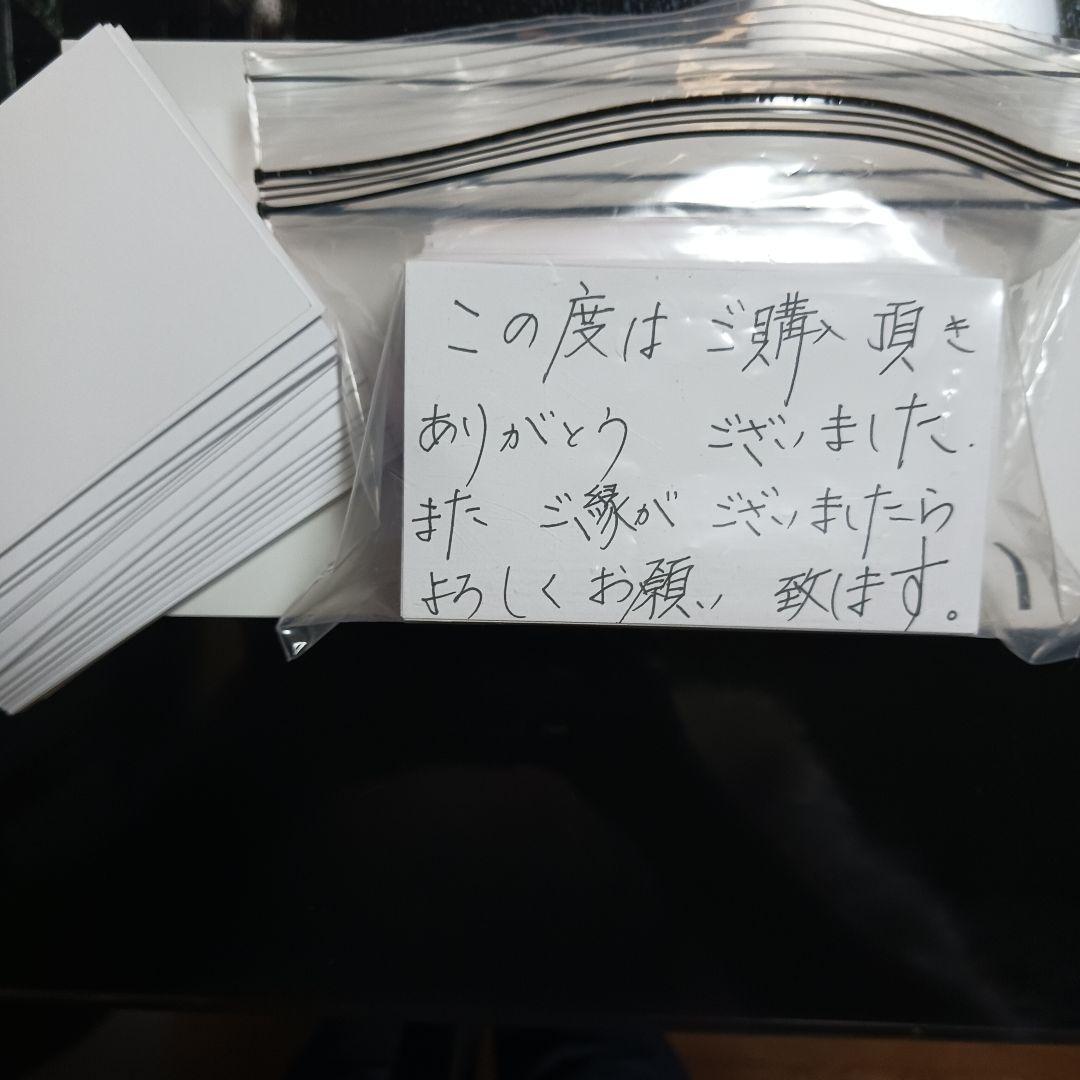 この度は ご購入頂き
ありがとう ございました.
また ご縁が ございましたら
よろしくお願い 致します。